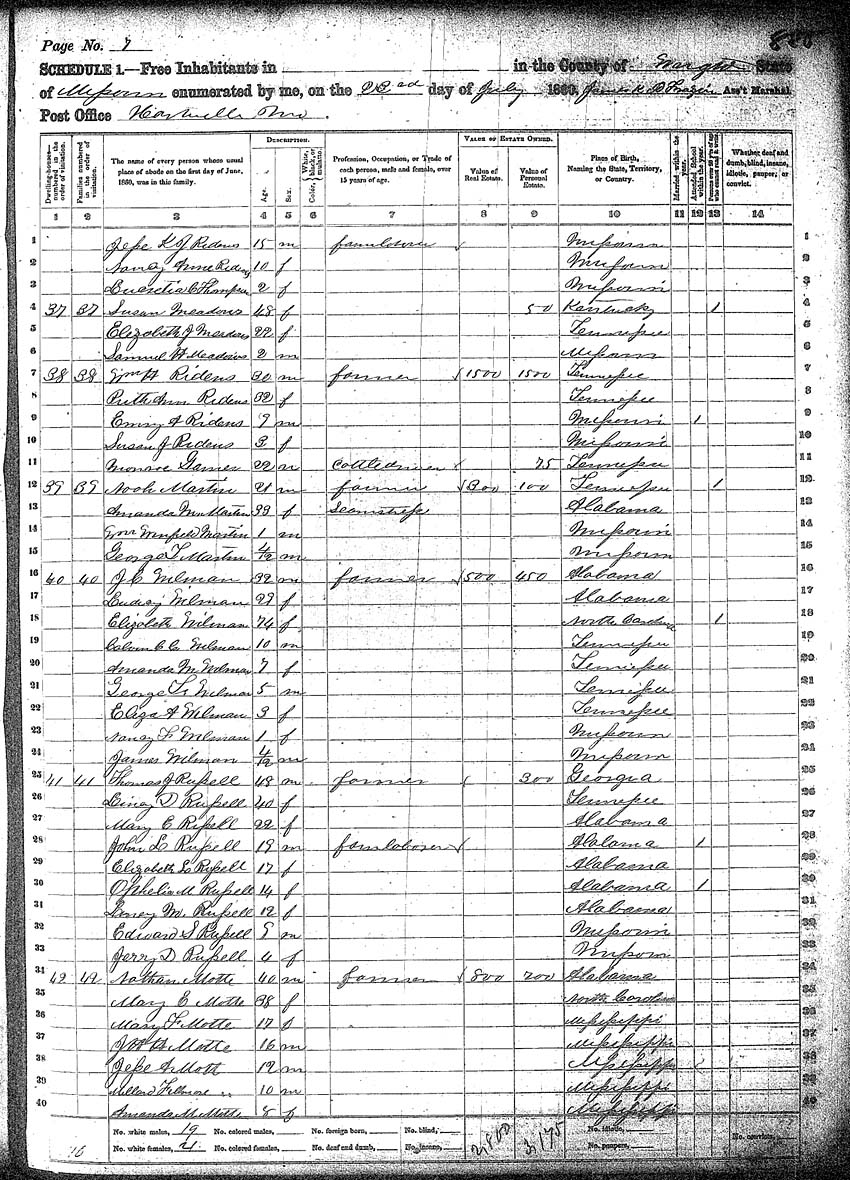 Page No. 7
SCHEDULE 1.—Free Inhabitants in in the County of Wright State
of Missouri enumerated by me, on the 23rd day of July 1860. Ass't Marshal.
Post Office Hartville Mo.
Dwelling-houses numbered in the order of visitation. Families numbered in the order of visitation. The name of every person whose usual place of abode on the first day of June, 1860, was in this family. Description. Age. Sex. Color, White, black, or mulatto. Profession, Occupation, or Trade of each person, male and female, over 15 years of age. Value of Estate Owned. Value of Real Estate. Value of Personal Estate. Place of Birth, Naming the State, Territory, or Country. Married within the year. Attended School within the year. Whether deaf and dumb, blind, insane, idiotic, pauper, or convict.
1 2 3 4 5 6 7 8 9 10 11 12 13 14
1 Jesse K J Ridens 15 m Missouri 1
2 Nancy Anne Ridens 10 f Missouri 2
3 Lucretia C Thompson 2 f Missouri 3
4 37 37 Susan Meadows 48 f 50 Kentucky 1 4
5 Elizabeth J Meadows 22 f Tennessee 5
6 Samuel H Meadows 2 m Missouri 6
7 38 38 Wm H Ridens 30 m farmer 1500 1500 Tennessee 7
8 Ruth Ann Ridens 32 f Tennessee 8
9 Emry A Ridens 9 m Missouri 1 9
10 Susan J Ridens 3 f Missouri 10
11 Monroe Garner 22 m 75 Tennessee 11
12 39 39 Noah Martin 21 m farmer 300 100 Tennessee 1 12
13 Amanda M Martin 33 f Seamstress Alabama 13
14 Wm Winfield Martin 1 m Missouri 14
15 George T Martin 4/12 m Missouri 15
16 40 40 J C Wilman 32 m farmer 500 450 Alabama 16
17 Wilman 29 f Alabama 17
18 Elizabeth Wilman 74 f North Carolina 1 18
19 Calvin C C Wilman 10 m Tennessee 19
20 Amanda M Wilman 7 f Tennessee 20
21 George L Wilman 5 m Tennessee 21
22 Eliza A Wilman 3 f Tennessee 22
23 Nancy F Wilman 1 f Missouri 23
24 James Wilman 4/12 m Missouri 24
25 41 41 Thomas J Russell 48 m farmer 300 Georgia 25
26 D Russell 40 f Tennessee 26
27 Mary E Russell 22 f Alabama 27
28 John L Russell 19 m farm laborer Alabama 1 28
29 Elizabeth L Russell 17 f Alabama 29
30 Ophelia M Russell 14 f Alabama 1 30
31 M. Russell 12 f Alabama 31
32 Edward S Russell 9 m Missouri 32
33 Jerry D Russell 4 f Missouri 33
34 42 42 Nathan Motte 40 m farmer 800 200 Alabama 34
35 Mary E Motte 38 f North Carolina 35
36 Mary F Motte 17 f Mississippi 36
37 Motte 16 m Mississippi 37
38 Jesse A Mott 12 m Mississippi 38
39 Millard Filmore " 10 m Mississippi 39
40 Amanda M Motte 8 f Mississippi 40
No. white males, 19 No. colored males, No. foreign born, No. blind, 3,175 No. idiotic, No. convicts,
No. white females, 21 No. colored females, No. deaf and dumb, No. insane, No. paupers,